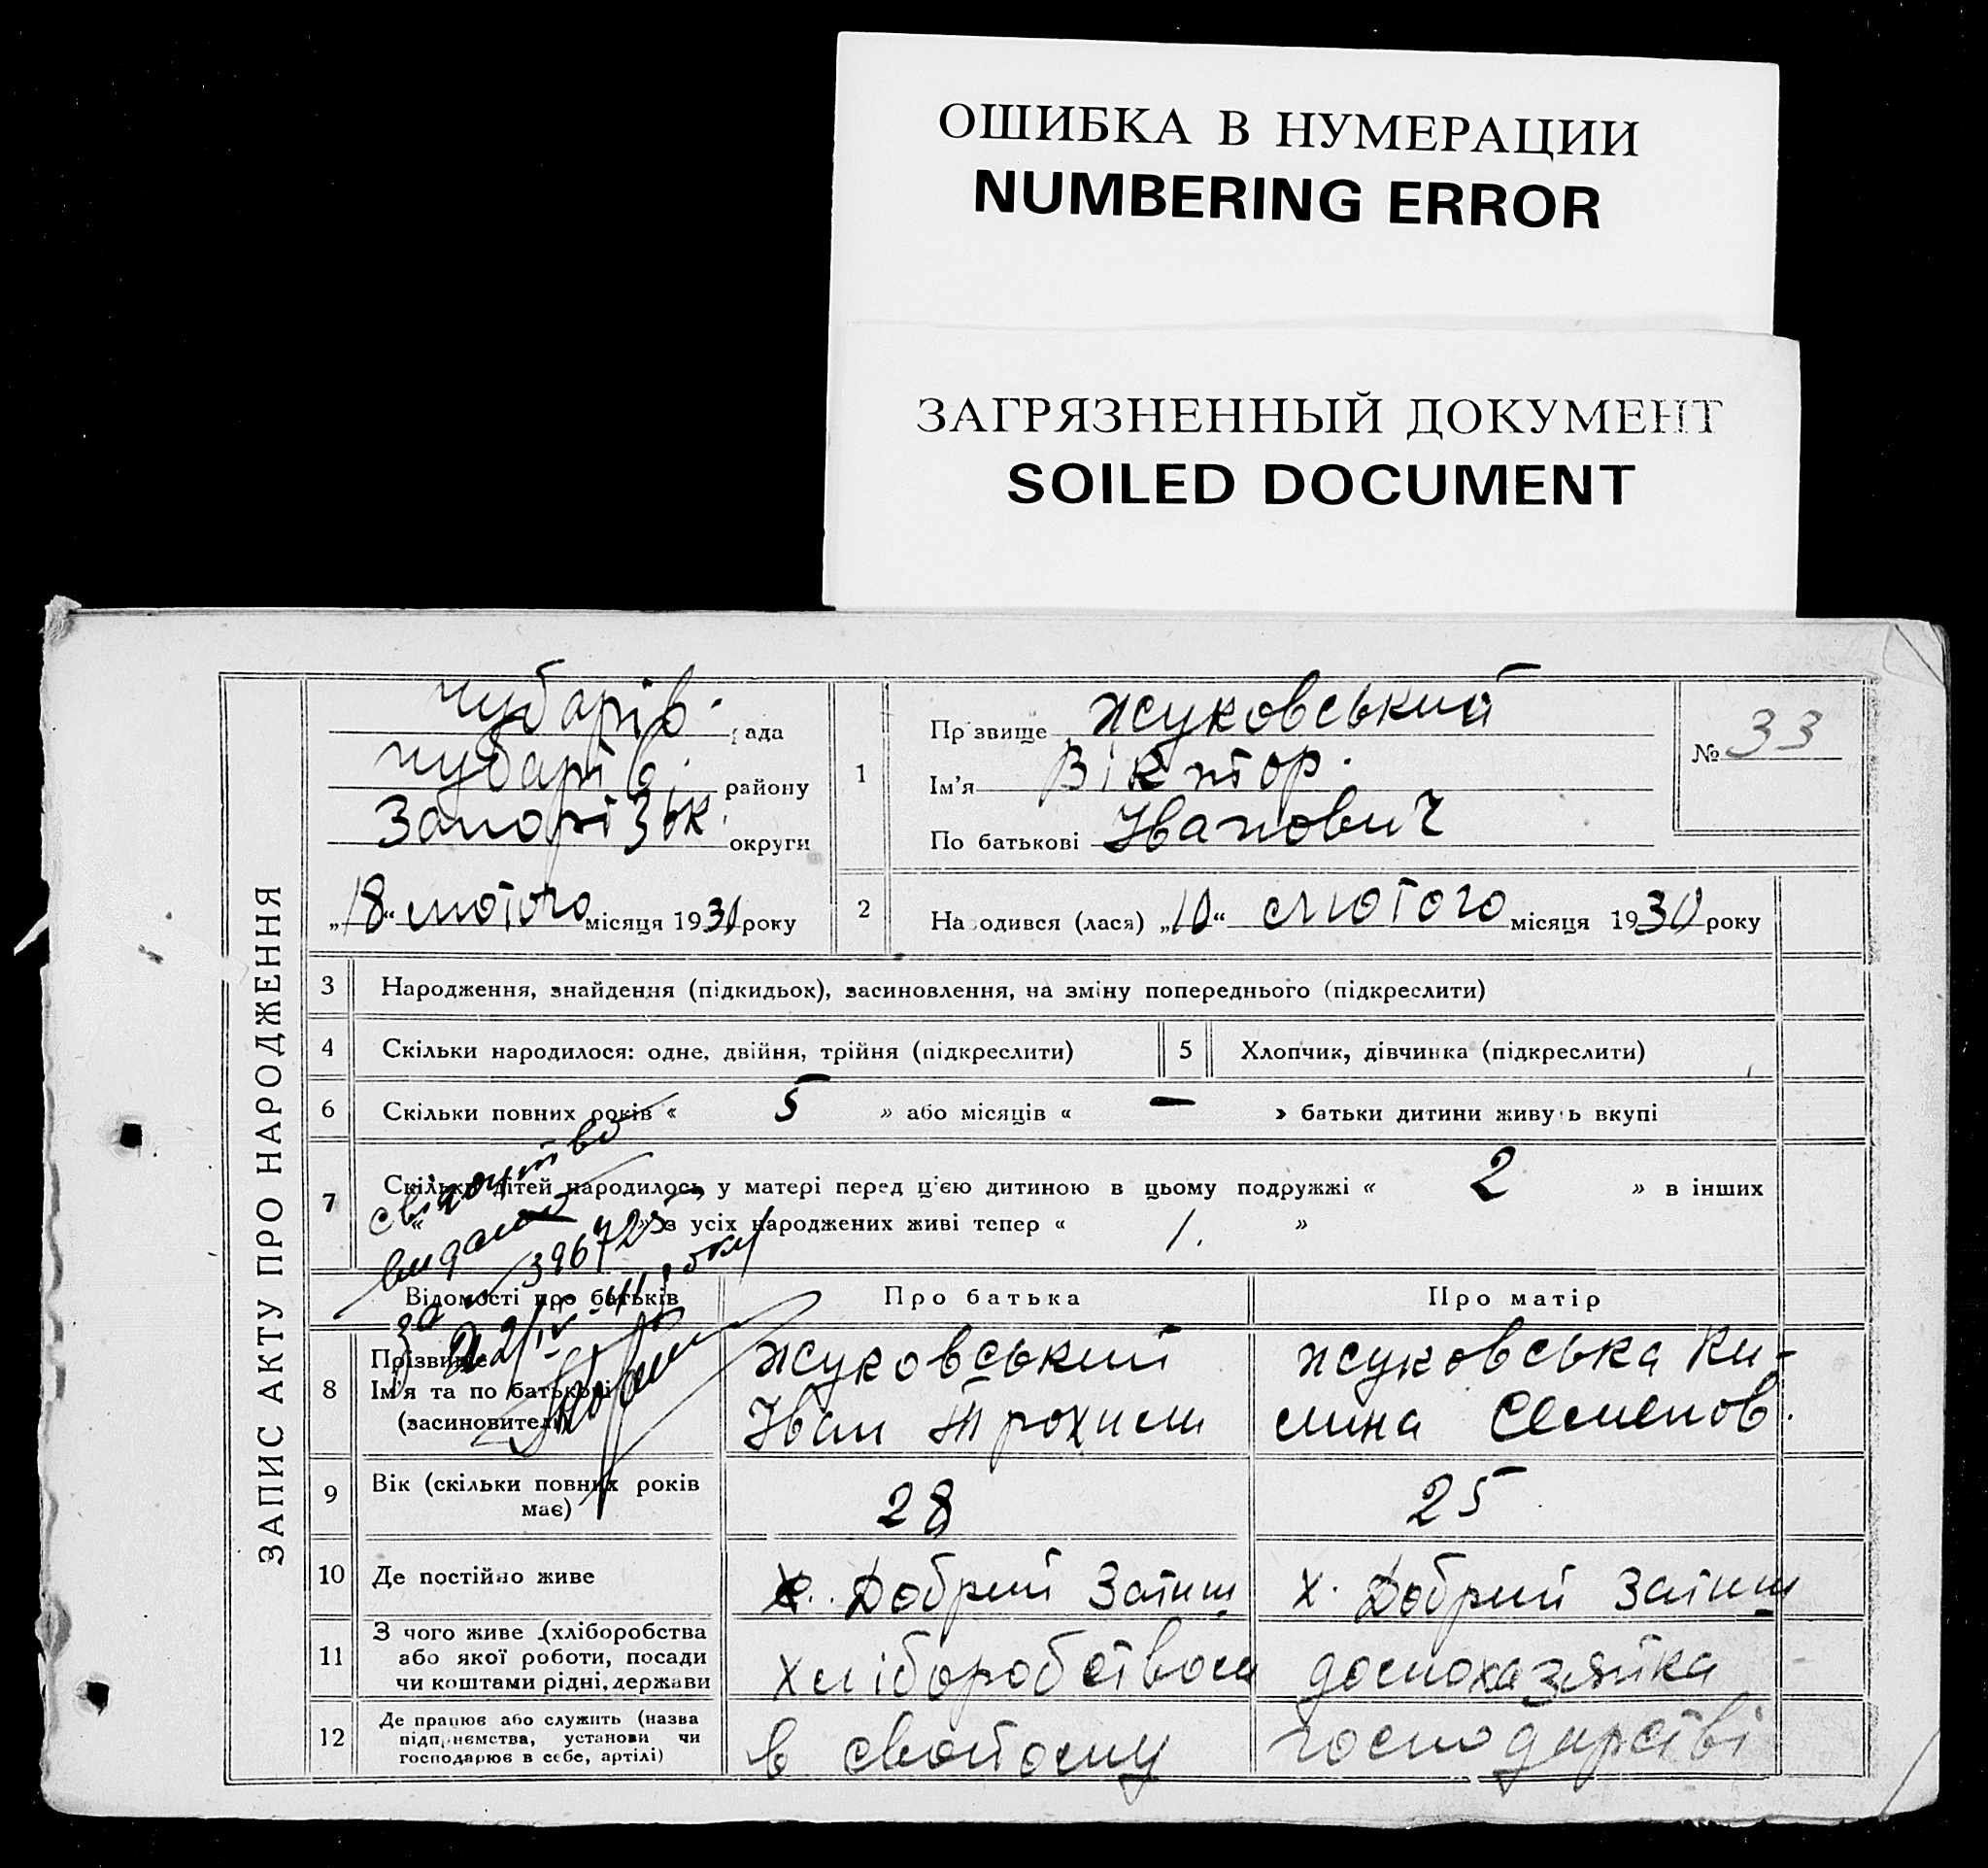 ОШИБКА В НУМЕРАЦИИ
NUMBERING ERROR
ЗАГРЯЗНЕННЫЙ ДОКУМЕНТ
SOILED DOCUMENT
ЗАПИС АКТУ ПРО НАРОДЖЕННЯ
Чубарів. рада
Чубарів. району
Запорізьк. округи
„18“ лютого місяця 1930 року
1 Прізвище Жуковський
Ім'я Віктор.
По батькові Іванович
№ 33
2 Народився (лася) „10“ лютого місяця 1930 року
3 Народження, знайдення (підкидьок), засиновлення, на зміну попереднього (підкреслити)
4 Скільки народилося: одне, двійня, трійня (підкреслити) 5 Хлопчик, дівчинка (підкреслити)
6 Скільки повних років « 5 » або місяців « — » батьки дитини живуть вкупі
7 Скільки дітей народилось у матері перед цією дитиною в цьому подружжі « 2 » в інших
« — » з усіх народжених живі тепер « 1. »
Свідоцтво
видано
за № 396725
22/IV-41 року
Відомості про батьків Про батька Про матір
8 Прізвище
Ім'я та по батькові
(засиновителі)
Жуковський
Іван Трохим
Жуковська Ки-
лина Семенов.
9 Вік (скільки повних років має) 28 25
10 Де постійно живе х. Добрий Затиш х. Добрий Затиш
11 З чого живе (хліборобства
або якої роботи, посади
чи коштами рідні, держави
хліборобством домохазяйка
12 Де працює або служить (назва
підприємства, установи чи
господарює в себе, артілі)
в свойому господарстві